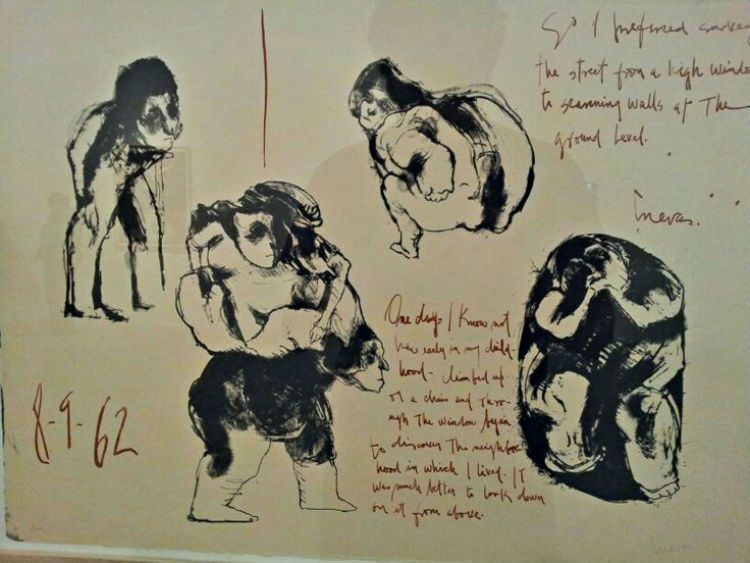 So I preferred survey
the street from a high windo
to scanning walls at The
ground level.
Cuevas.
One day, I know not
how early in my child-
hood - climbed up
on a chair and thro-
ugh The window began
to discover The neighbor
hood in which I lived. IT
was much better to look down
on it from above.
8-9-62